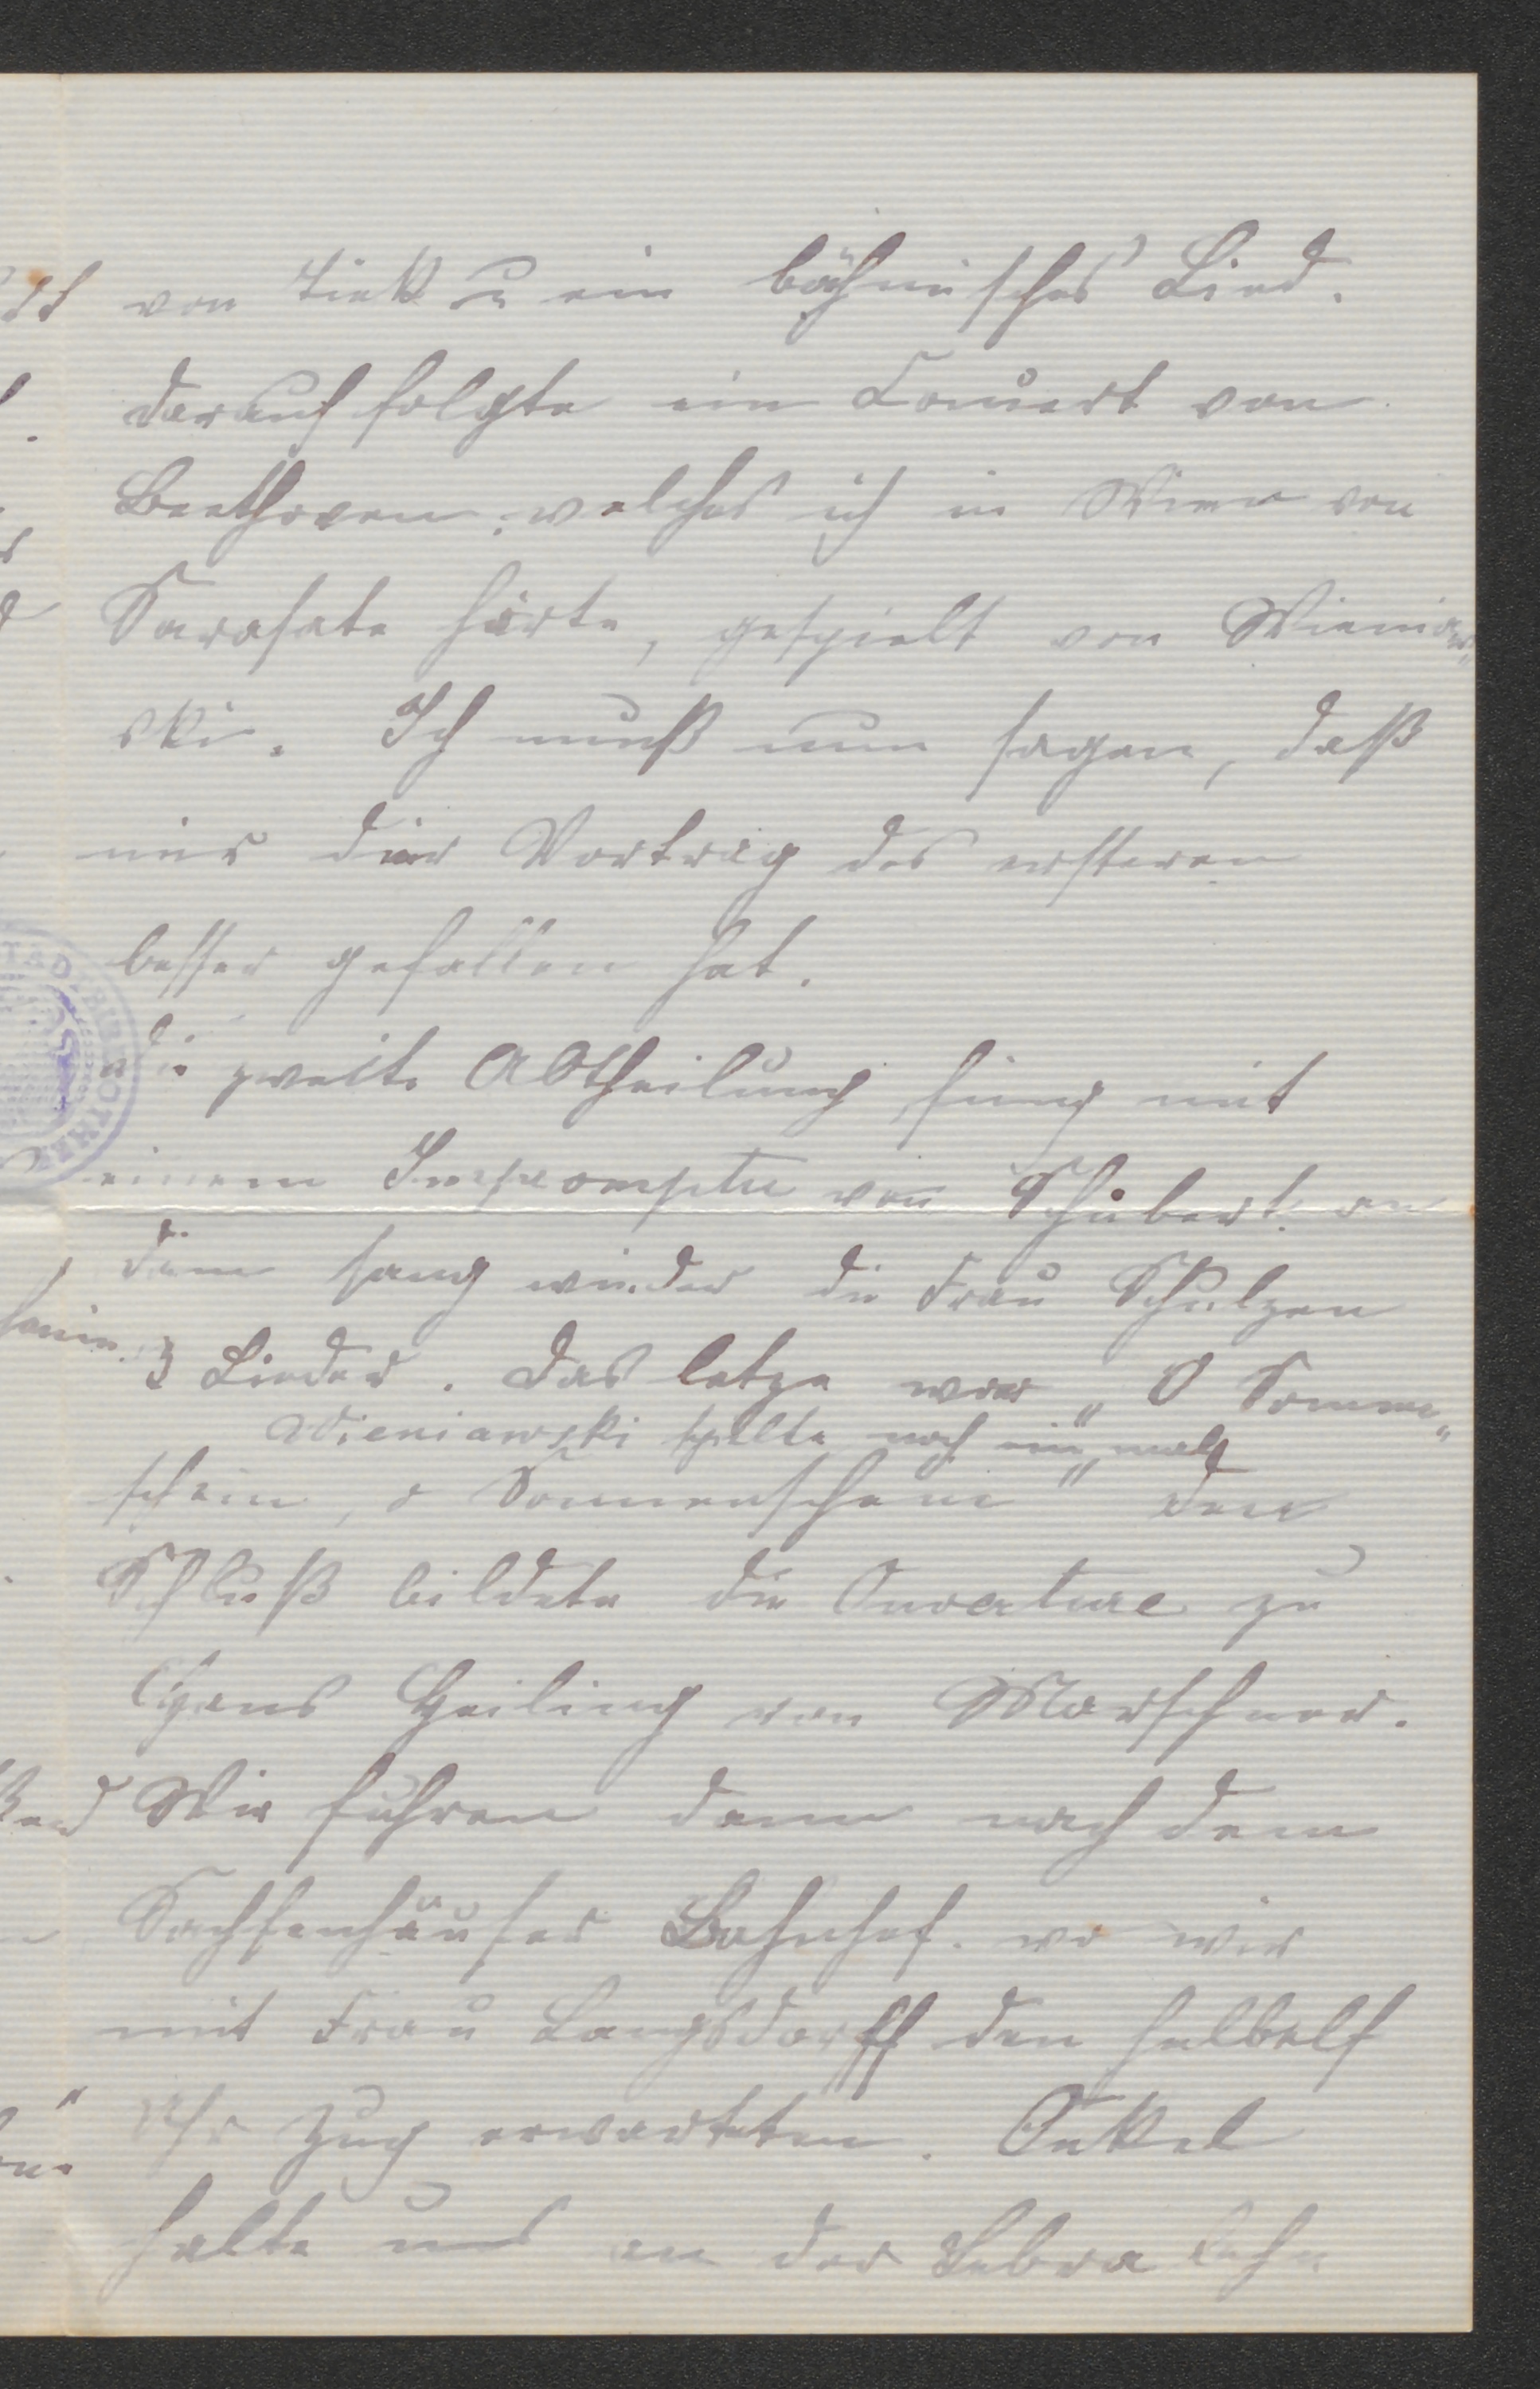 von Tiek u ein böhmisches Lied.
darauf folgte ein Concert von
Beethoven, welches ich in Wien von
Sarasate hörte, gespielt von Wieniaw„
ski. Ich muß nun sagen, daß
mir der Vortrag des ersteren
besser gefallen hat.
die zweite Abtheilung fing mit
einem Impromptu von Schubert an
dann sang wieder die Frau Schulzen
3 Lieder. Das letze war „O Sonnen„
Wieniawski spielte noch ein„mal
schein, o Sonnenschein" den
Schluß bildete die Ouverture zu
Hans Heiling von Marschner.
Wir fuhren dann nach dem
Sachsenhäuser Bahnhof. wo wir
mit Frau Langsdorff den halbelf
Uhr Zug erwarteten. Onkel
holte uns an der
STADTBIBLIOTHEK